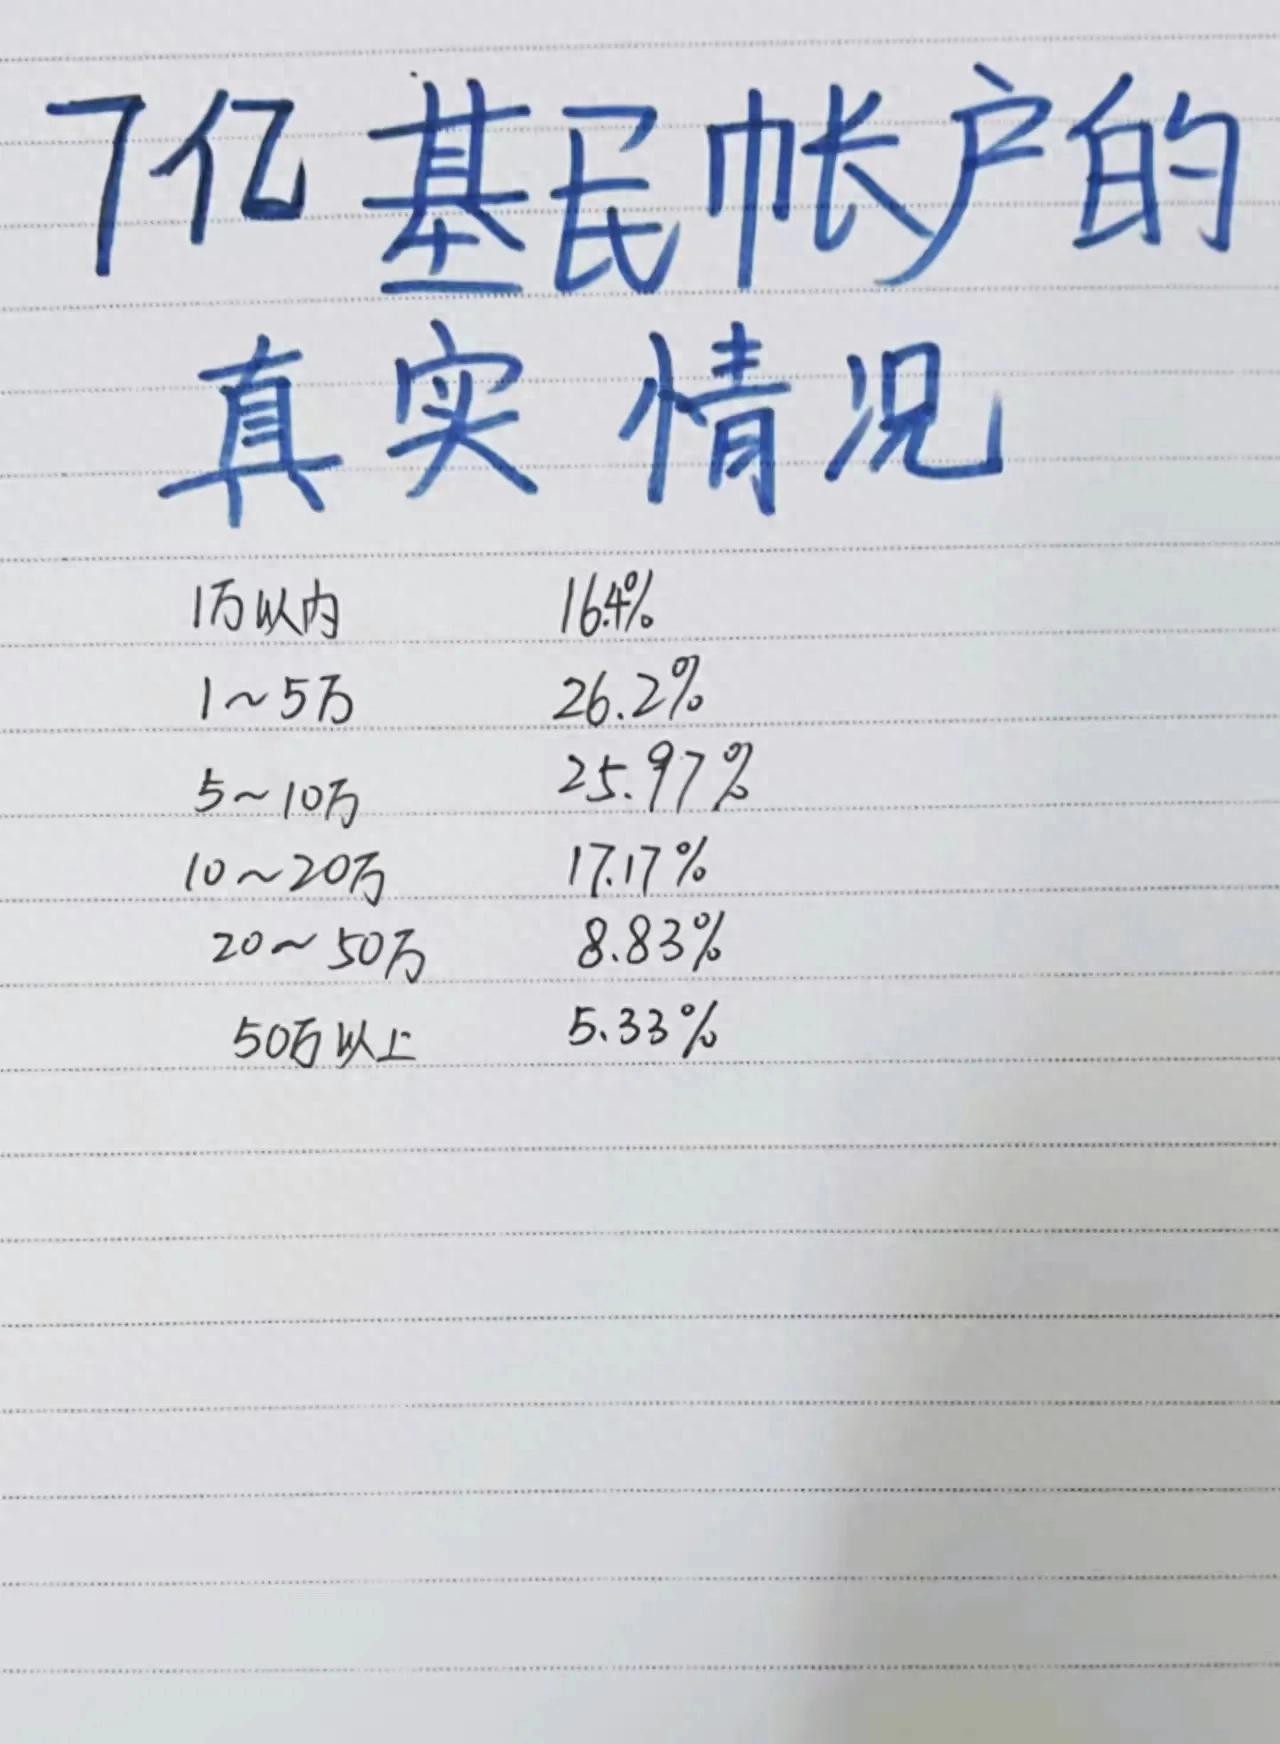 7亿基民帐户的
真实情况
1万以内 16.4%
1~5万 26.2%
5~10万 25.97%
10~20万 17.17%
20~50万 8.83%
50万以上 5.33%